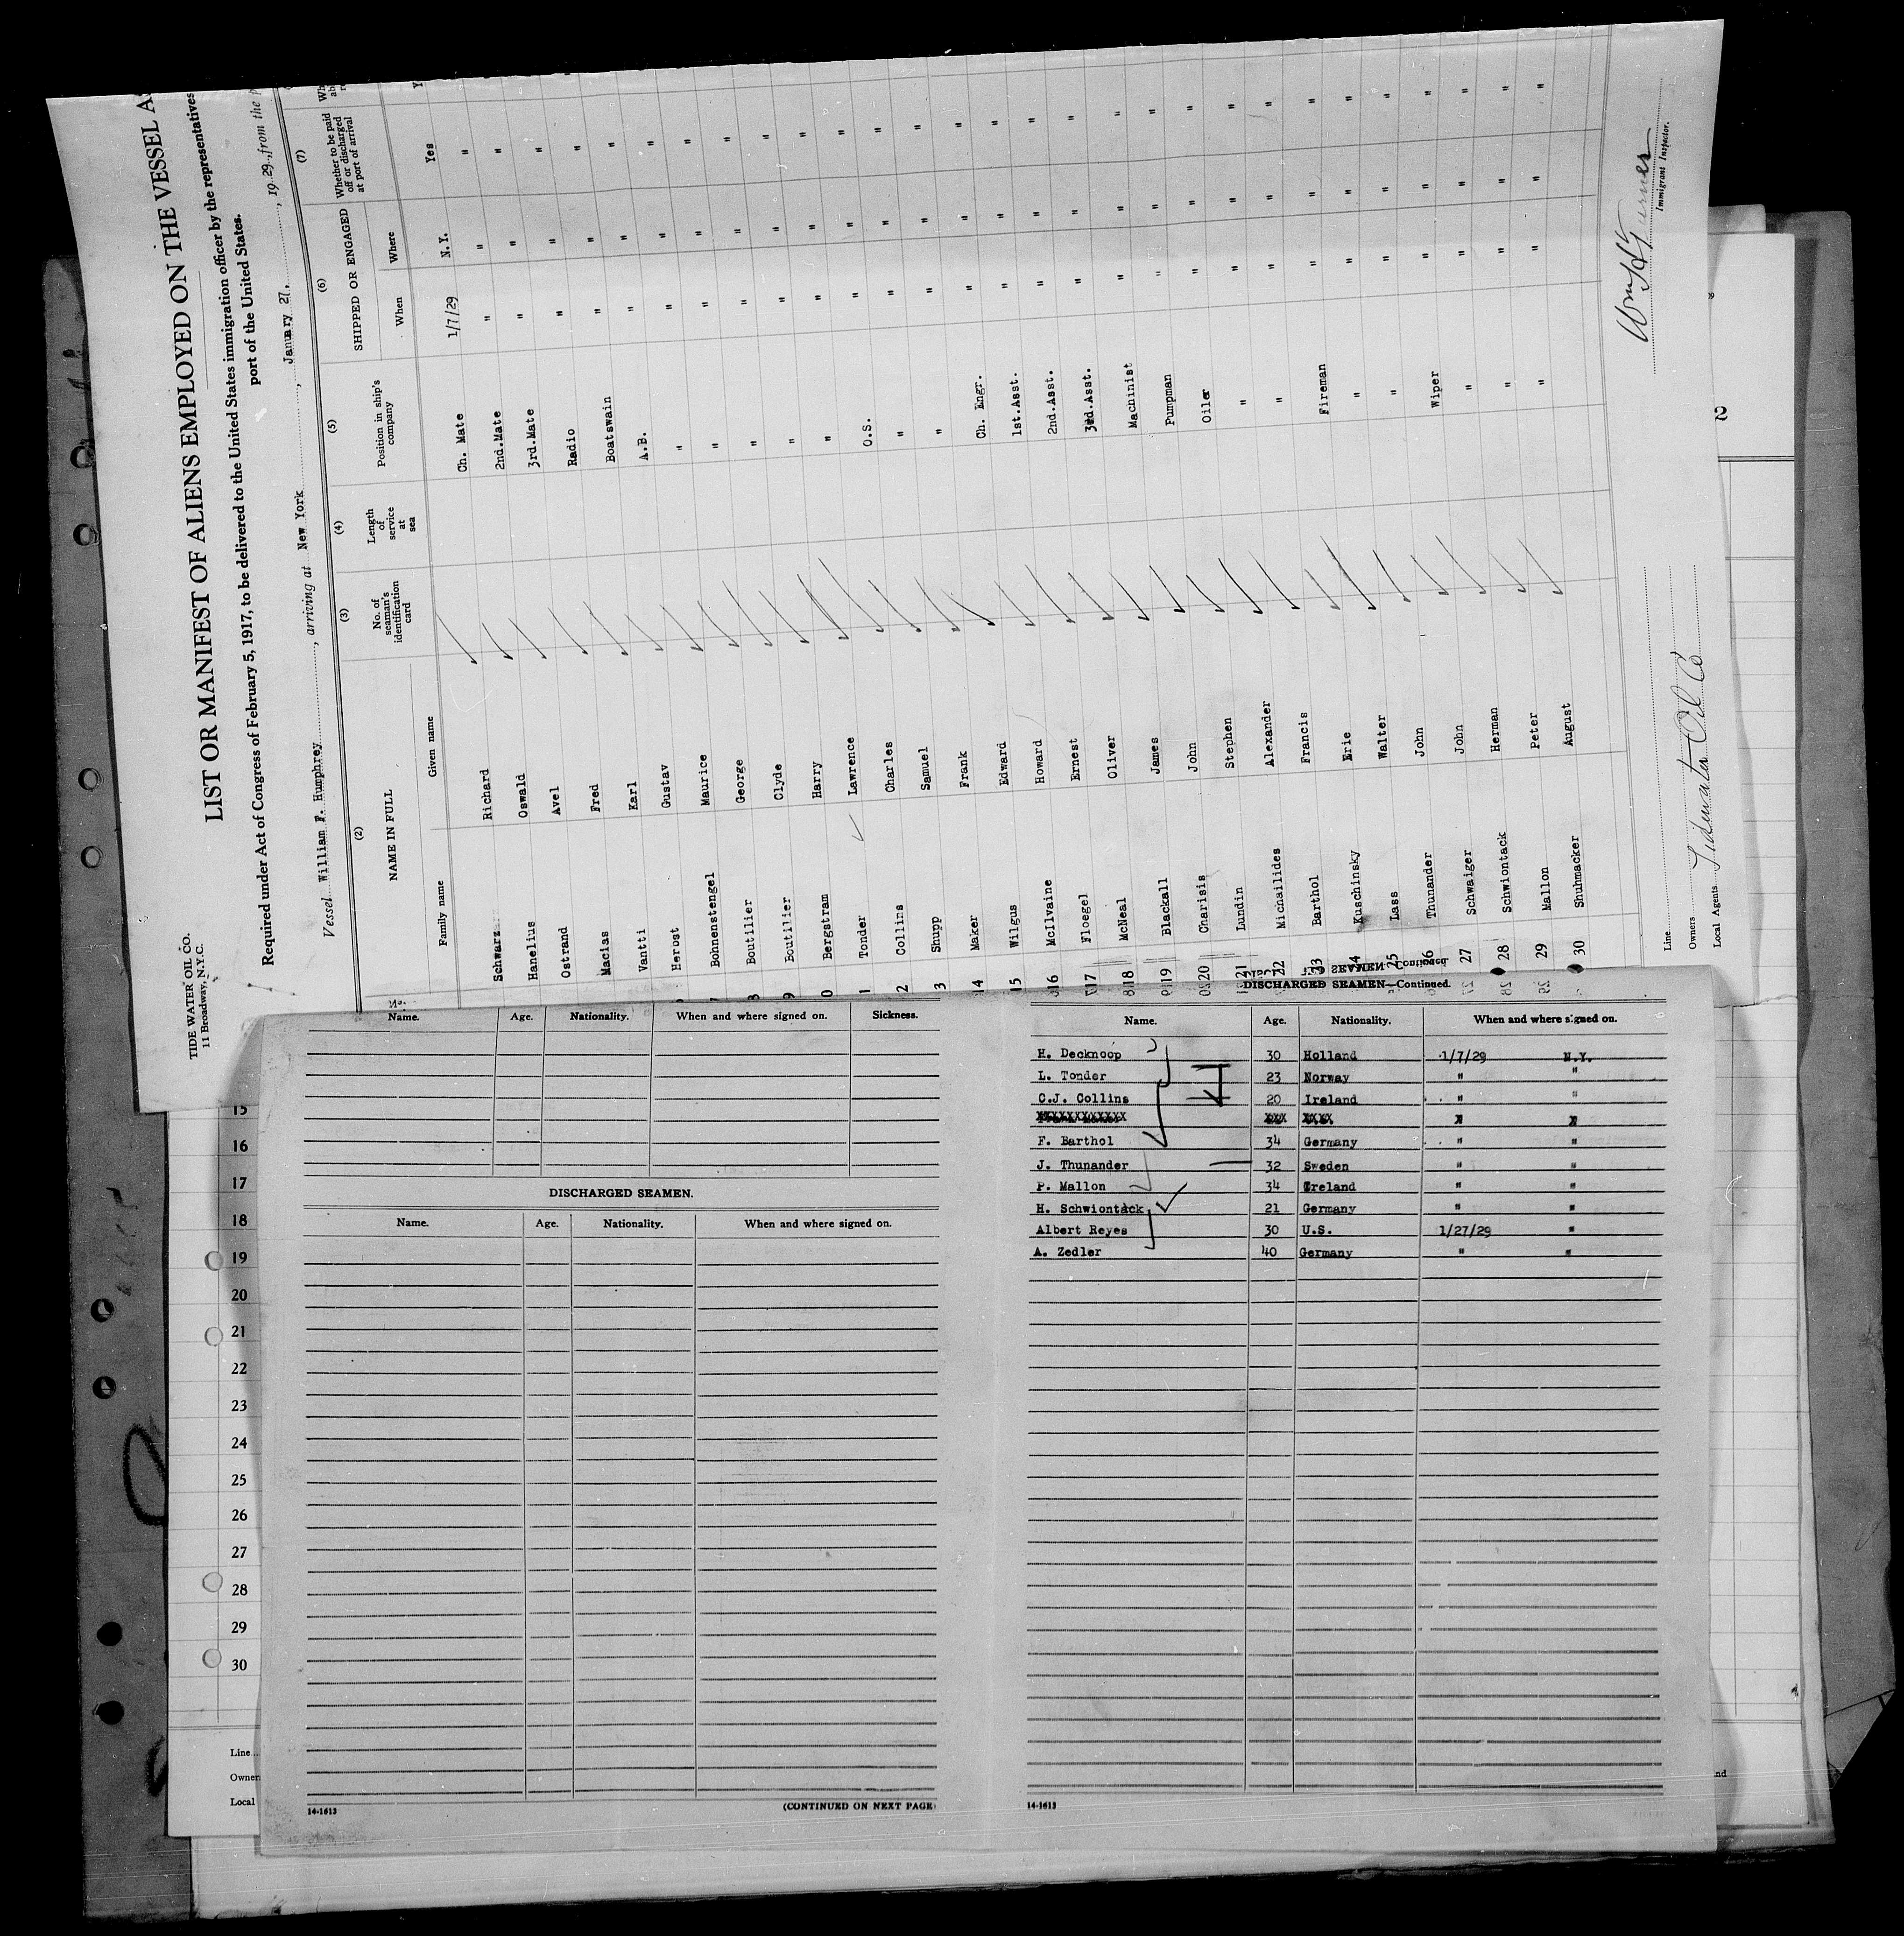 TIDE WATER OIL CO.
11 Broadway, N.Y.C.
LIST OR MANIFEST OF ALIENS EMPLOYED ON THE VESSEL
Required under Act of Congress of February 5, 1917, to be delivered to the United States immigration officer by the representatives
port of the United States.
Vessel William F. Humphrey, arriving at New York, January 27, 1929, from the
(2) (3) (4) (5) (6) (7)
NAME IN FULL No. of seaman's identification card Length of service at sea Position in ship's company SHIPPED OR ENGAGED Whether to be paid off or discharged at port of arrival
Family name Given name When Where
Schwarz Richard Ch. Mate 1/7/29 N.Y. Yes
Hanelius Oswald 2nd.Mate " " "
Ostrand Avel 3rd.Mate " " "
Macias Fred Radio " " "
Vantti Karl Boatswain " " "
Herbst Gustav A.B. " " "
Bohnenstengel Maurice " " " "
8 Boutilier George " " " "
9 Boutilier Clyde " " " "
0 Bergstram Harry " " " "
1 Tonder Lawrence " " " "
2 Collins Charles O.S. " " "
3 Shupp Samuel " " " "
14 Maker Frank " " " "
15 Wilgus Edward Ch. Engr. " " "
16 McIlvaine Howard 1st.Asst. " " "
17 Floegel Ernest 2nd.Asst. " " "
18 McNeal Oliver 3rd.Asst. " " "
19 Blackall James Machinist " " "
20 Charisis John Pumpman " " "
21 Lundin Stephen Oiler " " "
22 Michailides Alexander " " " "
23 Barthol Francis " " " "
24 Kuschinsky Erie Fireman " " "
25 Lass Walter " " " "
26 Thunander John " " " "
27 Schwaiger John Wiper " " "
28 Schwiontack Herman " " " "
29 Mallon Peter " " " "
30 Shuhmacker August " " " "
Line
Owners Tidewater Oil Co
Local Agents
Immigrant Inspector.
Name. Age. Nationality. When and where signed on. Sickness.
DISCHARGED SEAMEN.
Name. Age. Nationality. When and where signed on.
14-1613
(CONTINUED ON NEXT PAGE)
DISCHARGED SEAMEN—Continued.
Name. Age. Nationality. When and where signed on.
H. Decknoop 30 Holland 1/7/29 N.Y.
L. Tonder 23 Norway " "
C.J. Collins 20 Ireland " "
F. Barthol 34 Germany " "
J. Thunander 32 Sweden " "
P. Mallon 34 Ireland " "
H. Schwiontack 21 Germany " "
Albert Reyes 30 U.S. 1/27/29 "
A. Zedler 40 Germany " "
14-1613
15
16
17
18
19
20
21
22
23
24
25
26
27
28
29
30
Line
Owner
Local
2